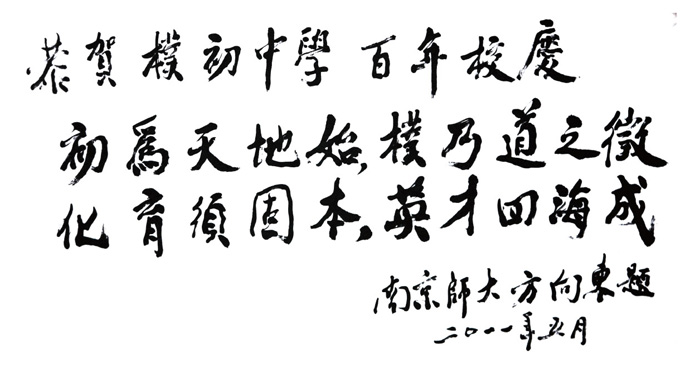 恭賀樸初中學百年校慶
初爲天地始，樸乃道之徵
化育須固本，英才四海成
南京師大方向東題
二〇一一年五月